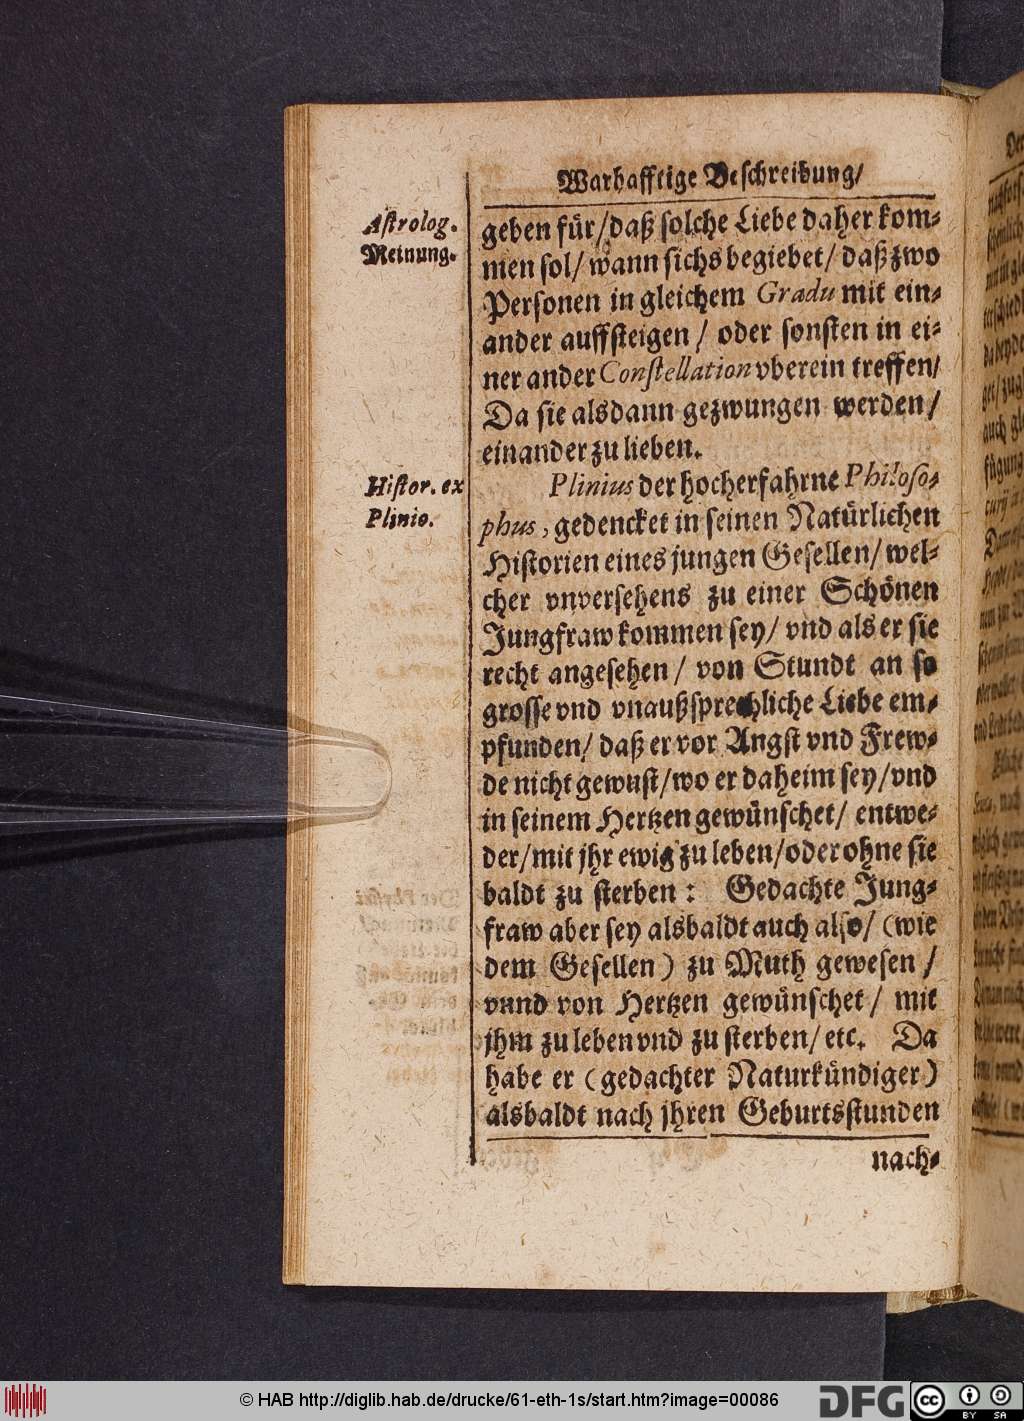 Warhafftige Beschreibung/
Astrolog.
Meinung.
geben für/daß solche Liebe daher kom-
men sol/ wann sichs begiebet/ daß zwo
Personen in gleichem Gradu mit ein-
ander auffsteigen / oder sonsten in ei-
ner ander Constellation vberein treffen/
Da sie alsdann gezwungen werden/
einander zu lieben.
Histor. ex
Plinio.
Plinius der hocherfahrne Philoso-
phus, gedencket in seinen Natürlichen
Historien eines jungen Gesellen/ wel-
cher vnversehens zu einer Schönen
Jungfraw kommen sey/ vnd als er sie
recht angesehen / von Stundt an so
grosse vnd vnaußsprechliche Liebe em-
pfunden/ daß er vor Angst vnd Frew-
de nicht gewust/wo er daheim sey/vnd
in seinem Hertzen gewünschet/ entwe-
der/mit jhr ewig zu leben/oder ohne sie
baldt zu sterben : Gedachte Jung-
fraw aber sey alsbaldt auch also/ (wie
dem Gesellen) zu Muth gewesen /
vnnd von Hertzen gewünschet / mit
jhm zu leben vnd zu sterben/ etc. Da
habe er (gedachter Naturkündiger)
alsbaldt nach jhren Geburtsstunden
nach-
© HAB http://diglib.hab.de/drucke/61-eth-1s/start.htm?image=00086
DFG
cc
BY SA